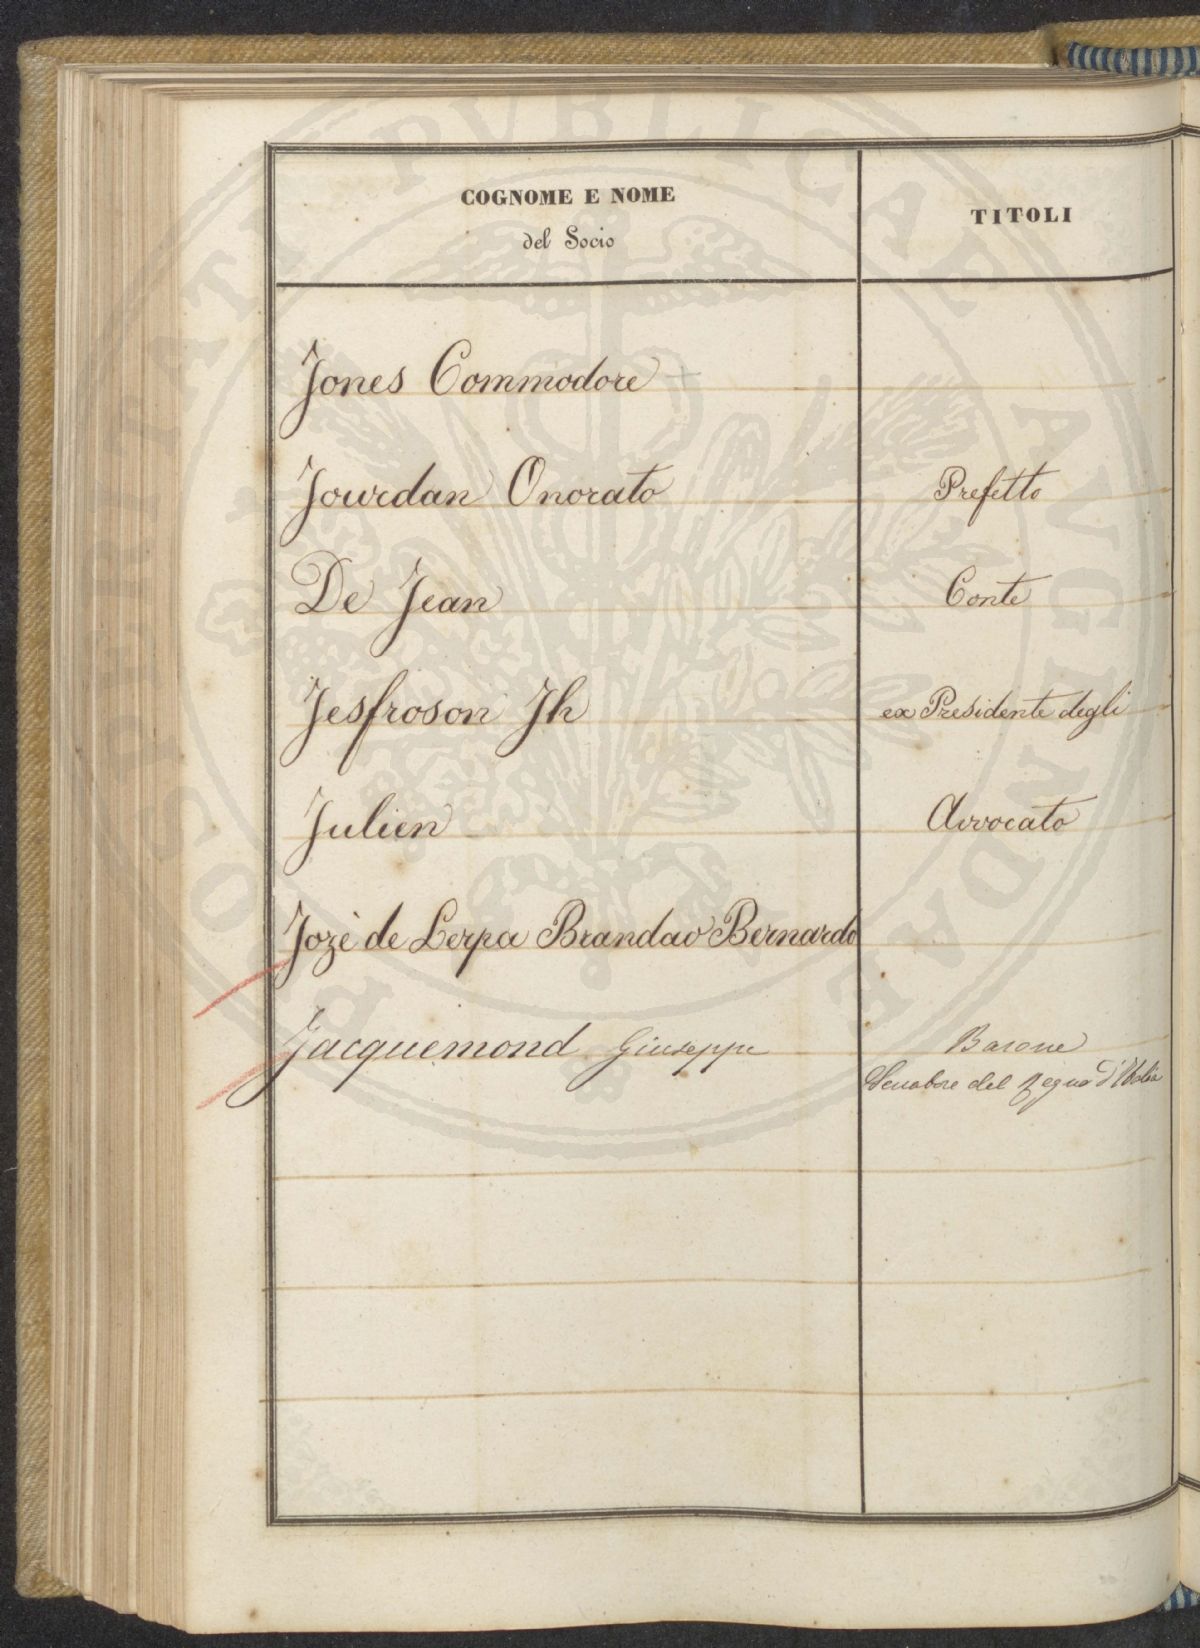 COGNOME E NOME
del Socio
TITOLI
Jones Commodore
Jourdan Onorato Prefetto
De Jean Conte
Jesfroson Jh ex Presidente degli
Julien Avvocato
Jozè de Lerpa Brandao Bernardo
Jacquemond Giuseppe Barone
Senatore del Regno d'Italia
POSTERITATI PUBLICAE AUGENDAE